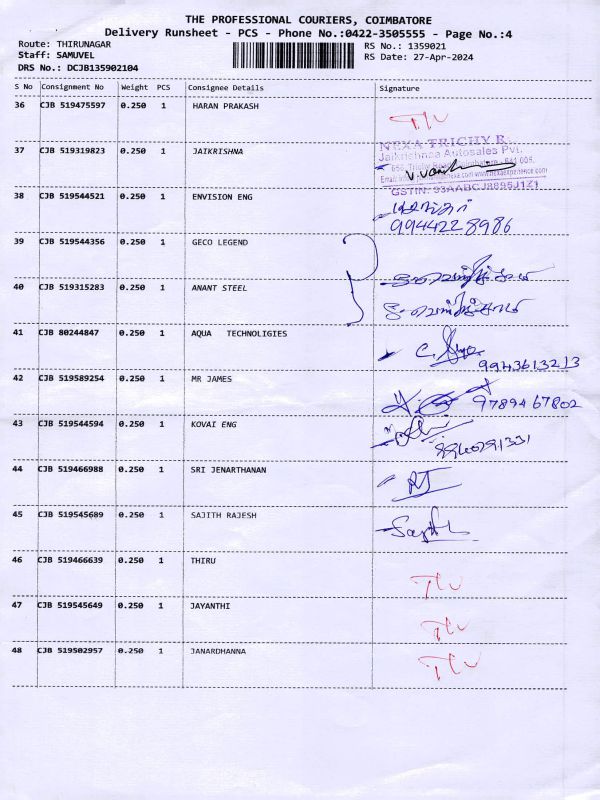 THE PROFESSIONAL COURIERS, COIMBATORE
Delivery Runsheet - PCS - Phone No.:0422-3505555 - Page No.:4
Route: THIRUNAGAR RS No.: 1359021
Staff: SAMUVEL RS Date: 27-Apr-2024
DRS No.: DCJB135902104
S No Consignment No Weight PCS Consignee Details Signature
36 CJB 519475597 0.250 1 HARAN PRAKASH
37 CJB 519319823 0.250 1 JAIKRISHNA
NEXA TRICHY R
Jaikrishnaa Autosales Pvt.
GSTIN: 33AABCJ8895J1Z1
38 CJB 519544521 0.250 1 ENVISION ENG
9944228986
39 CJB 519544356 0.250 1 GECO LEGEND
40 CJB 519315283 0.250 1 ANANT STEEL
41 CJB 80244847 0.250 1 AQUA TECHNOLIGIES
9943613213
42 CJB 519589254 0.250 1 MR JAMES
9789467802
43 CJB 519544594 0.250 1 KOVAI ENG
44 CJB 519466988 0.250 1 SRI JENARTHANAN
45 CJB 519545689 0.250 1 SAJITH RAJESH
46 CJB 519466639 0.250 1 THIRU
47 CJB 519545649 0.250 1 JAYANTHI
48 CJB 519502957 0.250 1 JANARDHANNA